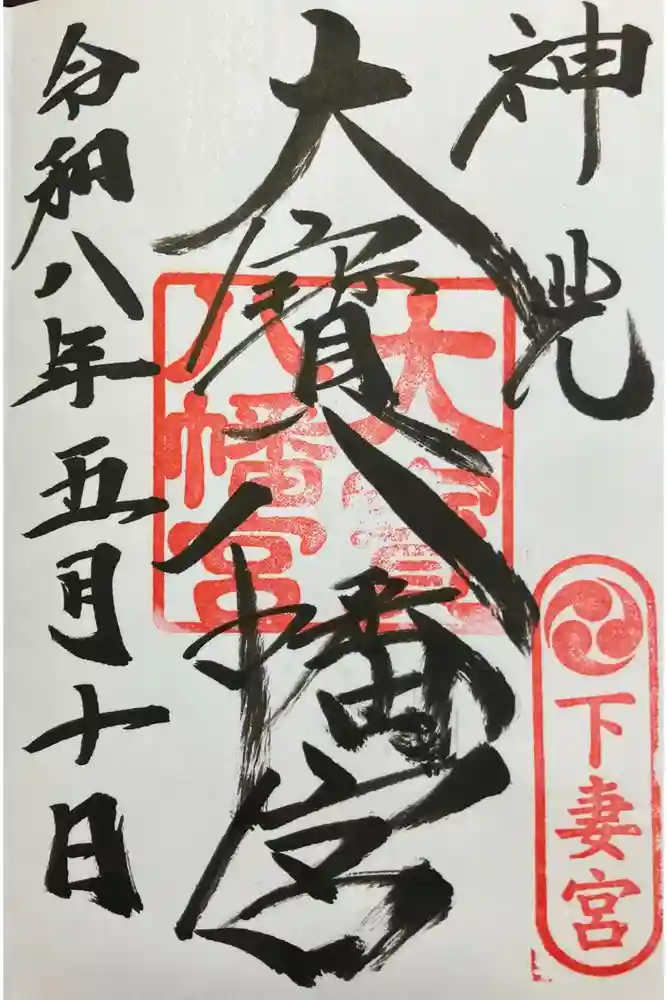 神光
下妻宮
大寳八幡宮
大宝八幡宮
令和八年五月十日